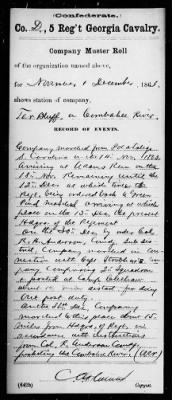 (Confederate.)
Co. D, 5 Reg't Georgia Cavalry.
Company Muster Roll
of the organization named above,
for November & December, 1863,
shows station of company,
Tar Bluff, on Combahee River.
RECORD OF EVENTS.
Company marched from Pocotaligo
S. Carolina on the 14 Nov. 1863,
arriving at Adams Run on the
15. Nov. Remaining until the
12. Dec. at which time the
Regt. being ordered back to Green
Pond marched arriving at which
place on the 13. Dec. the present
Hdqrs. of the Regiment.
On the 20. Dec. by order Col.
R. H. Anderson Comdg. Sub-Dis-
trict, Company marched in con-
nection with Capt.
pany comprising 2d Squadron
& posted at Camp
about 10 miles distant for duty
Out post duty.
On the Dec. Company
moved to this place about 15
miles from Hdqrs. of Regt. in
accordance with instructions
from Col. R. Anderson Comdg.
protecting the Combahee River.
(642b) Copyist.